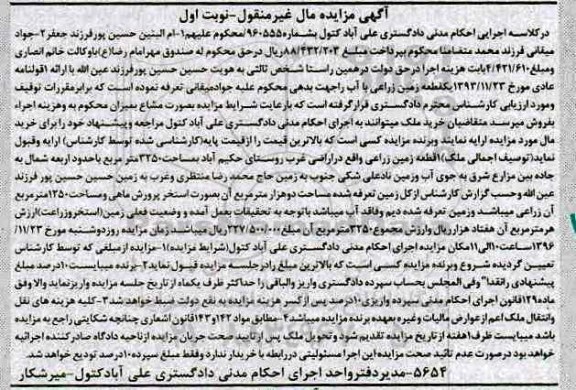 آگهی مزایده مال غیرمنقول-نوبت اول
درکلاسه اجرایی احکام مدنی دادگستری علی آباد کتول بشماره۹۶۰۵۵۵/محکوم علیهم۱-ام البنین حسین پورفرزند جعفر۲-جواد
میقانی فرزند محمد متضامنا محکوم بپرداخت مبلغ ۸۸/۴۳۲/۲۰۳ریال درحق محکوم له صندوق مهرامام رضا(ع)باوکالت خانم انصاری
ومبلغ۴/۴۲۱/۶۱۰بابت هزینه اجرا درحق دولت درهمین راستا شخص ثالثی به هویت حسین حسین پور فرزند عین الله با ارائه ۱قولنامه
عادی مورخ ۱۳۹۳/۱۱/۲۳یکقطعه زمین زراعی با آب راجهت بدهی محکوم علیه جوادمیقانی تعرفه نموده است که برابرمقررات توقیف
ومورد ارزیابی کارشناس محترم دادگستری قرارگرفته است که بارعایت شرایط مزایده بصورت مشاع بمیزان محکوم به وهزینه اجراء
بفروش میرسد متقاضیان خرید ملک میتوانند به اجرای احکام مدنی دادگستری علی آباد کتول مراجعه وپیشنهاد خود را برای خرید
مال مورد مزایده ارایه نمایند وبرنده مزایده کسی است که بالاترین قیمت را ازقیمت پایه(کارشناسی شده توسط کارشناس) ارایه وقبول
نماید(توصیف اجمالی ملک)۱قطعه زمین زراعی واقع دراراضی غرب روستای حکیم آباد بمساحت۳۲۵۰متر مربع باحدود اربعه شمال به
جاده بین مزارع شرق به جوی آب وزمین نادعلی شکی جنوب به زمین حاج محمد رضا منتظری وغرب به زمین حسین حسین پور فرزند
عین الله وحسب گزارش کارشناس ازکل زمین تعرفه شده مساحت دوهزار مترمربع آن بصورت استخر پرورش ماهی ومساحت۱۲۵۰مترمربع
آن زراعی میباشد وزمین تعرفه شده دیم وفاقد آب میباشد باتوجه به تحقیقات بعمل آمده و وضعیت فعلی زمین(استخروزراعت)ارزش
هرمترمربع آن هفتاد هزارریال وارزش مجموع۳۲۵۰مترمربع آن مبلغ۲۲۷/۵۰۰/۰۰۰ریال میباشد زمان مزایده روزدوشنبه مورخ ۱۱/۲۳/
۱۳۹۶ساعت۱۰الی۱۱مکان مزایده اجرای احکام مدنی دادگستری علی آباد کتول(شرایط مزایده)۱-مزایده از مبلغی که توسط کارشناس
تعیین گردیده شروع وبرنده مزایده کسی است که بالاترین مبلغ رادرجلسه مزایده قبول نماید۲-برنده میبایست۱۰درصد مبلغ
پیشنهادی رانقدا"وفی المجلس بحساب سپرده دادگستری واریز والباقی را حداکثر ظرف یکماه از تاریخ جلسه مزایده واریزنماید والا وفق
ماده۱۲۹قانون اجرای احکام مدنی سپرده واریزی۱۰درصد پس از کسر هزینه مزایده به نفع دولت ضبط خواهد شد۳-کلیه هزینه های نقل
وانتقال ملک اعم از عوارض مالیات وغیره بعهده برنده مزایده میباشد۴-مطابق مواد۱۴۲و۱۴۳قانون اشعاری چنانچه شکایتی راجع به مزایده
باشد میبایست ظرف۱هفته از تاریخ مزایده تقدیم شود وتحویل ملک پس از تایید صحت جریان مزایده ازناحیه دادگاه صادرکننده اجرائیه
خواهد بود درصورت عدم تائید صحت مزایده این اجرا مسئولیتی دررابطه با خریدار ندارد وفقط مبلغ سپرده۱۰درصد تودیع خواهد شد.
۵۶۵۴-مدیردفترواحد اجرای احکام مدنی دادگستری علی آبادکتول-میرشکار